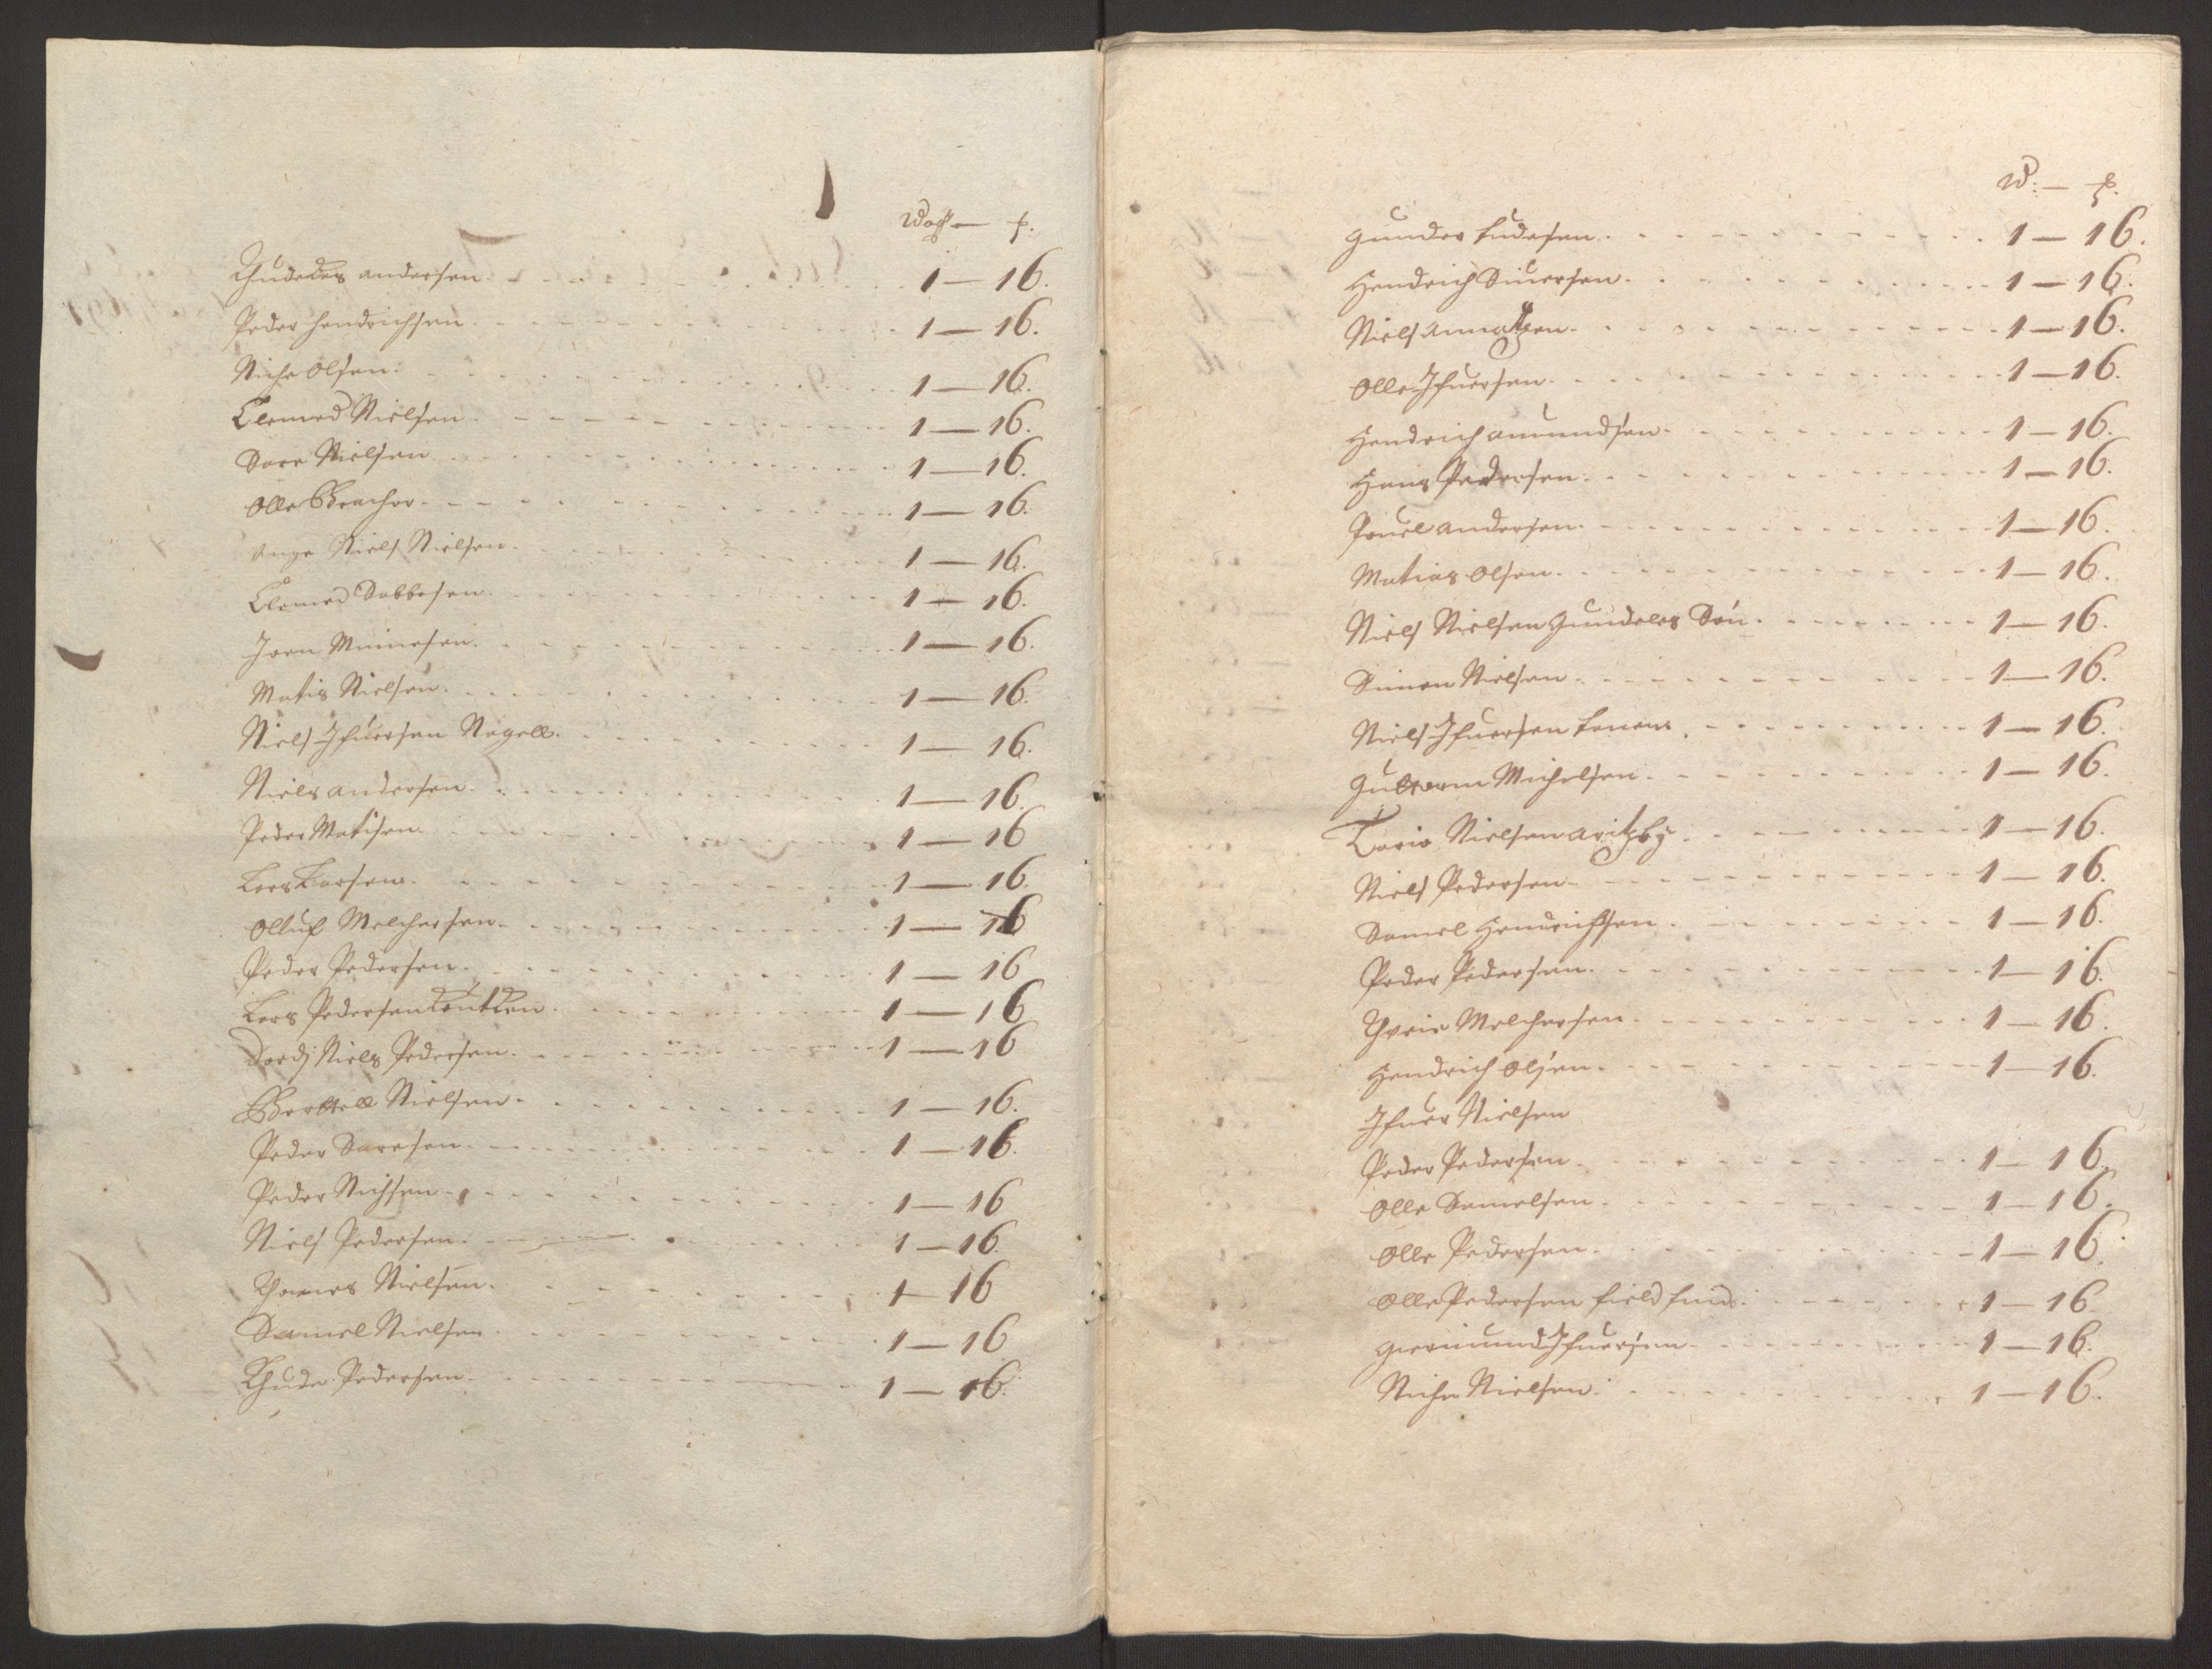 Wog — p.
andersen 1 — 16.
Peder Hendrichsen 1 — 16.
Niche Olsen 1 — 16.
Clemed Nielsen 1 — 16.
Sare Nielsen 1 — 16.
Olle 1 — 16.
unge Niels Nielsen 1 — 16.
Clemed Sabbesen 1 — 16.
Joen 1 — 16.
Matis Nielsen 1 — 16.
Niels Ifuersen Nagell 1 — 16.
Niels andersen 1 — 16.
Peder Matisen 1 — 16
Lars Larsen 1 — 16.
Olluf Melchersen 1 — 16
Peder Pedersen 1 — 16
Lars Pedersen 1 — 16
Niels Pedersen 1 — 16
Bertell Nielsen 1 — 16.
Peder Saresen 1 — 16.
Peder Nichsen 1 — 16
Niels Pedersen 1 — 16.
Thomes Nielsen 1 — 16
Samel Nielsen 1 — 16
Pedersen 1 — 16.
W: — p.
Gunder 1 — 16.
Hendrich Siuersen 1 — 16.
Niels 1 — 16.
Olle Ifuersen 1 — 16.
Hendrich amundsen 1 — 16.
Hans Pedersen 1 — 16.
Pouel andersen 1 — 16.
Matias Olsen 1 — 16.
Niels Nielsen Gundeles Søn 1 — 16.
Simen Nielsen 1 — 16.
Niels Ifuersen 1 — 16.
Gulterm Michelsen 1 — 16.
Nielsen 1 — 16.
Niels Pedersen 1 — 16.
Samel Hendrichsen 1 — 16.
Peder Pedersen 1 — 16.
Melchersen 1 — 16.
Hendrich Olsen 1 — 16.
Ifuer Nielsen
Peder Pedersen 1 — 16.
Olle Samelsen 1 — 16.
Olle Pedersen 1 — 16.
Olle Pedersen 1 — 16
Giermund Ifuersen 1 — 16.
Niche Nielsen 1 — 16.